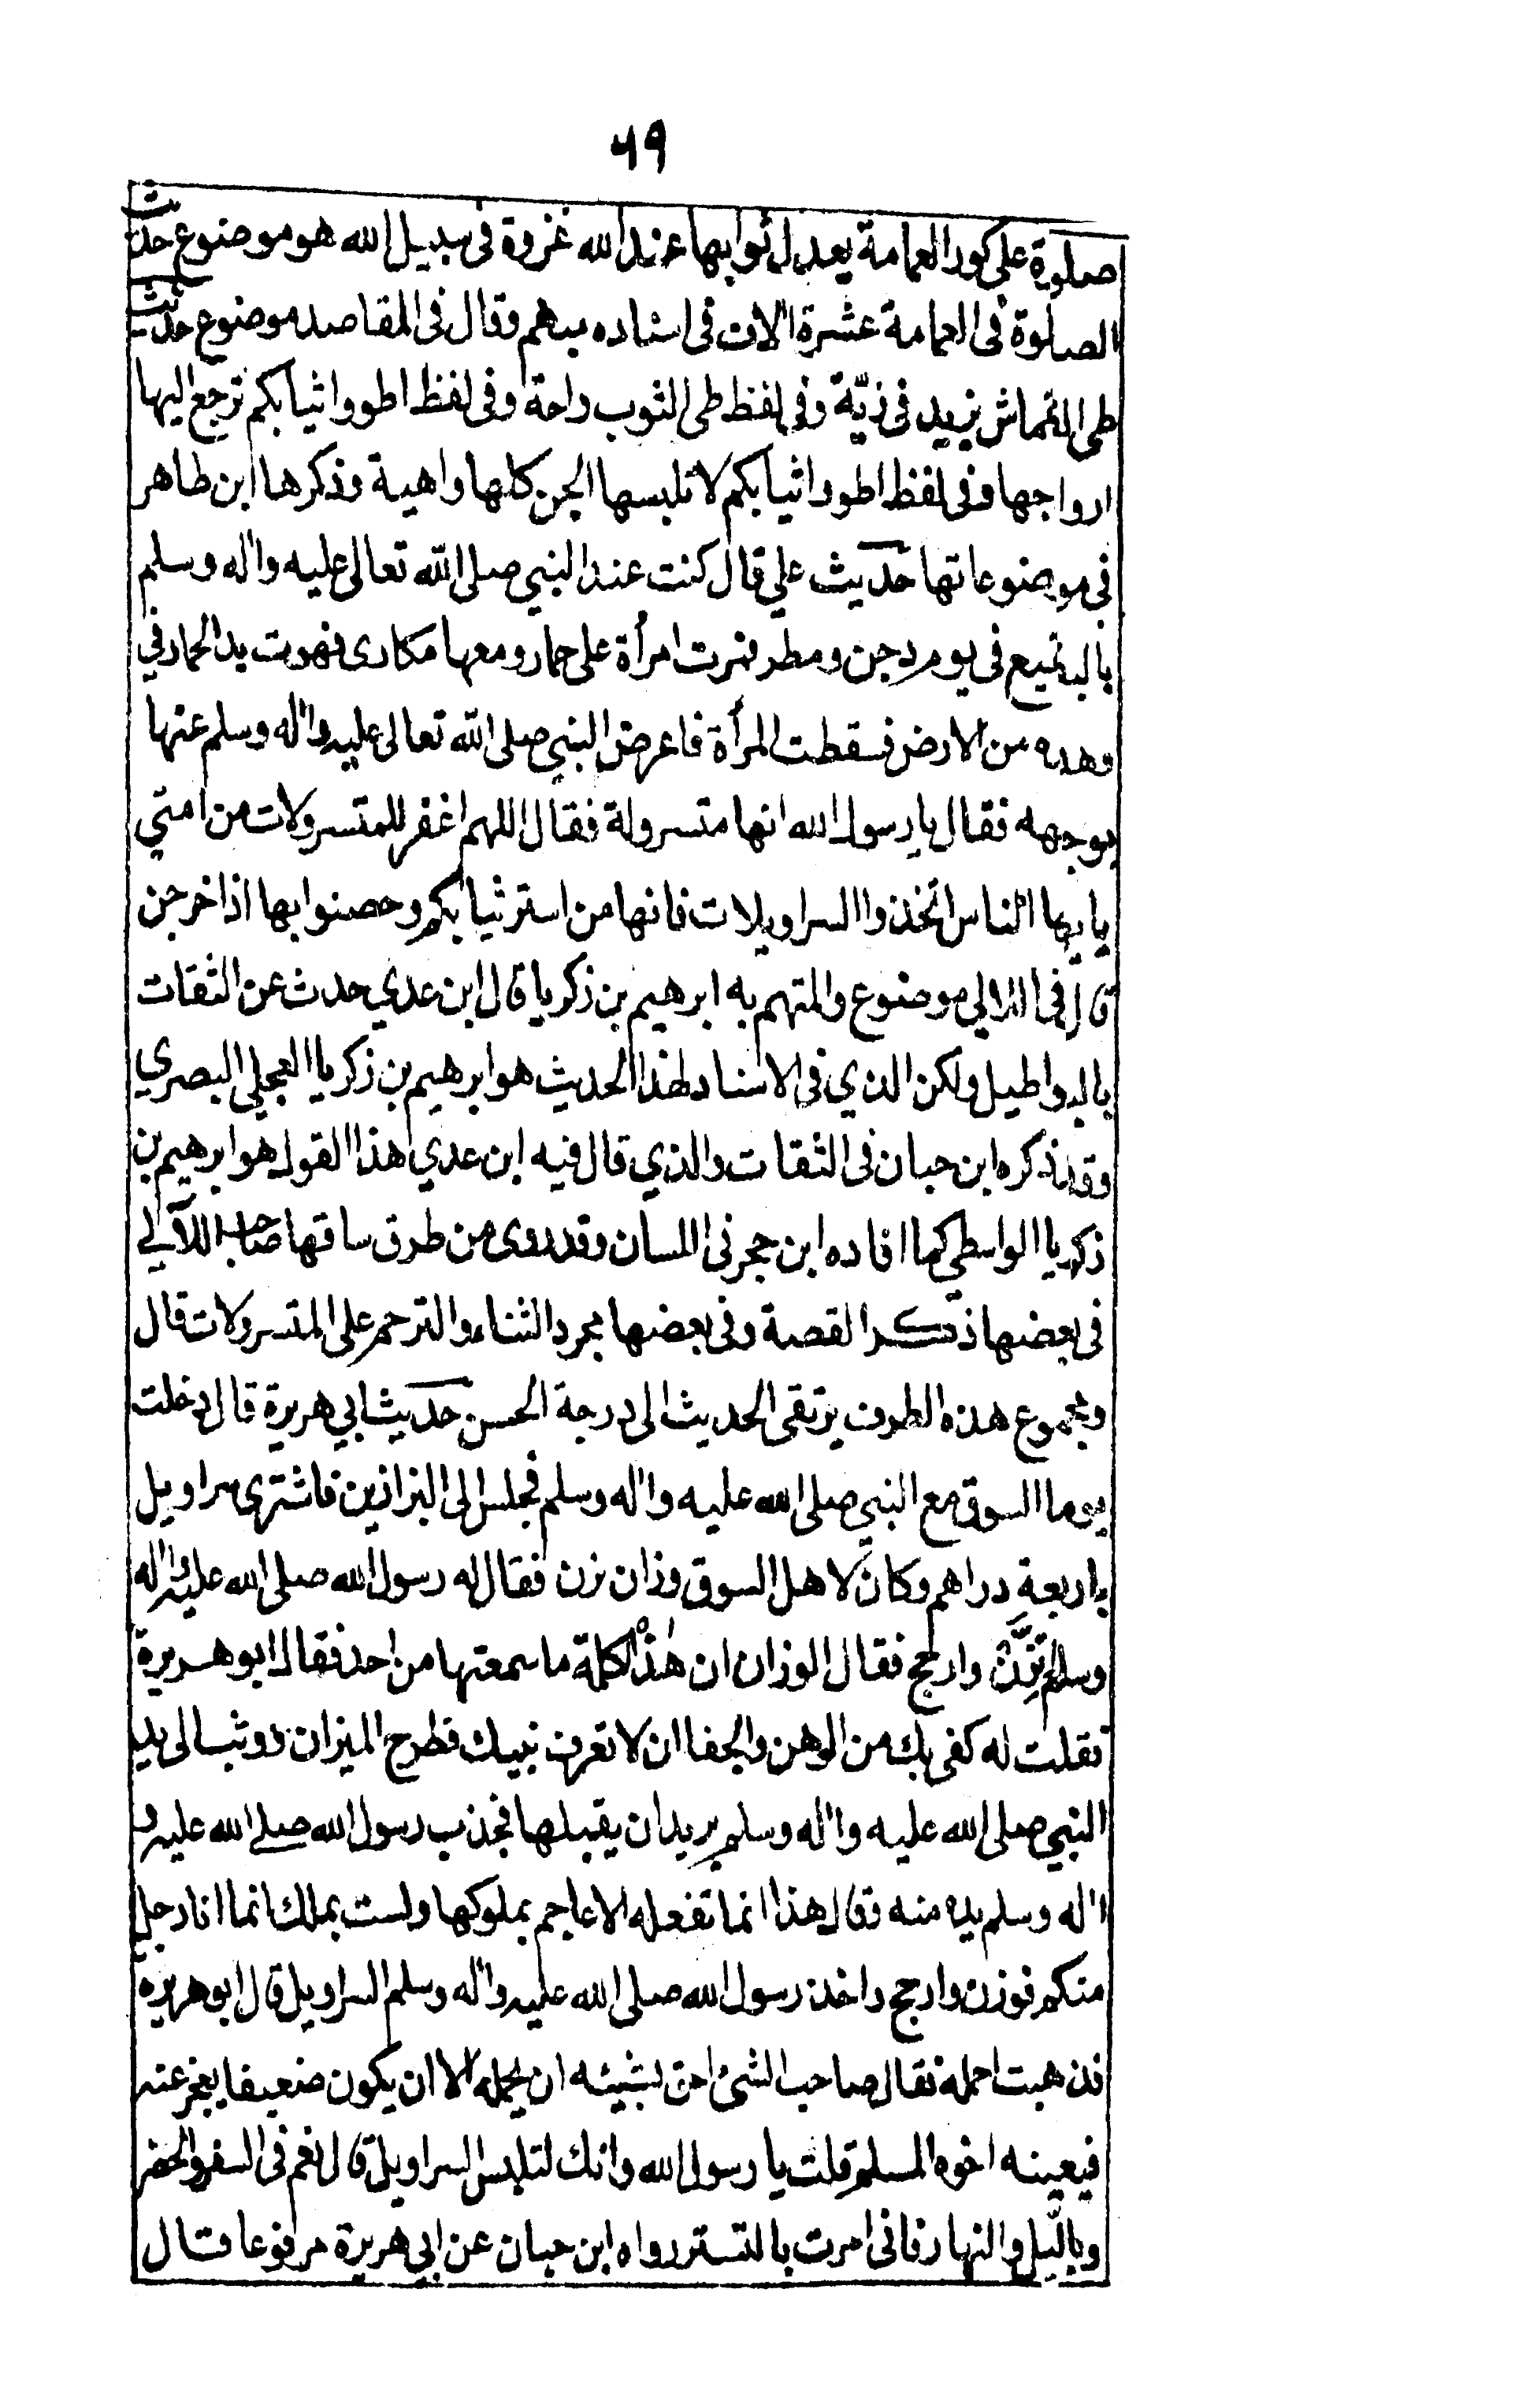 ٦٩
صلوة على كور العمامة يعدل ثوابها عند الله غزوة فى سبيل الله هو موضوع حديث
الصلوة فى العمامة عشرة الاف فى اسناده مبهم وقال فى المقاصد موضوع حديث
طى القماش يزيد فى زيّة وفى لفظ طى الثوب راحة وفى لفظ اطووا ثيابكم ترجع اليها
ارواحها وفى لفظ اطووا ثيابكم لا تلبسها الجن كلها واهية وذكرها ابن طاهر
فى موضوعاتها حديث علي قال كنت عند النبي صلى الله تعالى عليه واٰله وسلم
بالبقيع فى يوم دجن ومطر فمرت امرأة على حمار ومعها مكارى فهوت يد الحمار في
وهده من الارض فسقطت المرأة فاعرض النبي صلى الله تعالى عليه واٰله وسلم عنها
بوجهه فقال يا رسول الله انها متسرولة فقال اللهم اغفر للمتسرولات من امتي
يا ايها الناس اتخذوا السراويلات فانها من استر ثيابكم وحصنوا بها اذا خرجن
قال فى اللالي موضوع والمتهم به ابرهيم بن زكريا قال ابن عدي حدث عن الثقات
بالبواطيل ولكن الذي فى الاسناد لهذا الحديث هو ابرهيم بن زكريا العجلي البصري
وقد ذكره ابن حبان فى الثقات والذي قال فيه ابن عدي هذا القول هو ابرهيم بن
زكريا الواسطي كما افاده ابن حجر فى اللسان وقد روى من طرق ساقها صاحب اللآلي
فى بعضها ذكر القصة وفى بعضها مجرد الثناء والترحم على المتسرولات قال
وبمجموع هذه الطرق يرتقى الحديث الى درجة الحسن حديث ابي هريرة قال دخلت
يوما السوق مع النبي صلى الله عليه واٰله وسلم فجلس الى البزازين فاشترى سراويل
باربعة دراهم وكان لاهل السوق وزان يزن فقال له رسول الله صلى الله عليه واٰله
وسلم اتزن وارجح فقال الوزان ان هذه الكلمة ما سمعتها من احد فقال ابو هريرة
فقلت له كفى بك من الوهن والجفا ان لا تعرف نبيك فطرح الميزان ووثب الى يد
النبي صلى الله عليه واٰله وسلم يريد ان يقبلها فجذب رسول الله صلى الله عليه و
اٰله وسلم يده منه وقال هذا انما تفعله الاعاجم بملوكها ولست بملك انما انا رجل
منكم فوزن وارجح واخذ رسول الله صلى الله عليه واٰله وسلم السراويل قال ابو هريره
فذهبت احمله فقال صاحب الشئ احق بشيئه ان يحمله الا ان يكون ضعيفا يعجز عنه
فيعينه اخوه المسلم قلت يا رسول الله وانك لتلبس السراويل قال نعم فى السفر والحضر
وبالليل والنهار فانى امرت بالتستر رواه ابن حبان عن ابي هريرة مرفوعا وقال